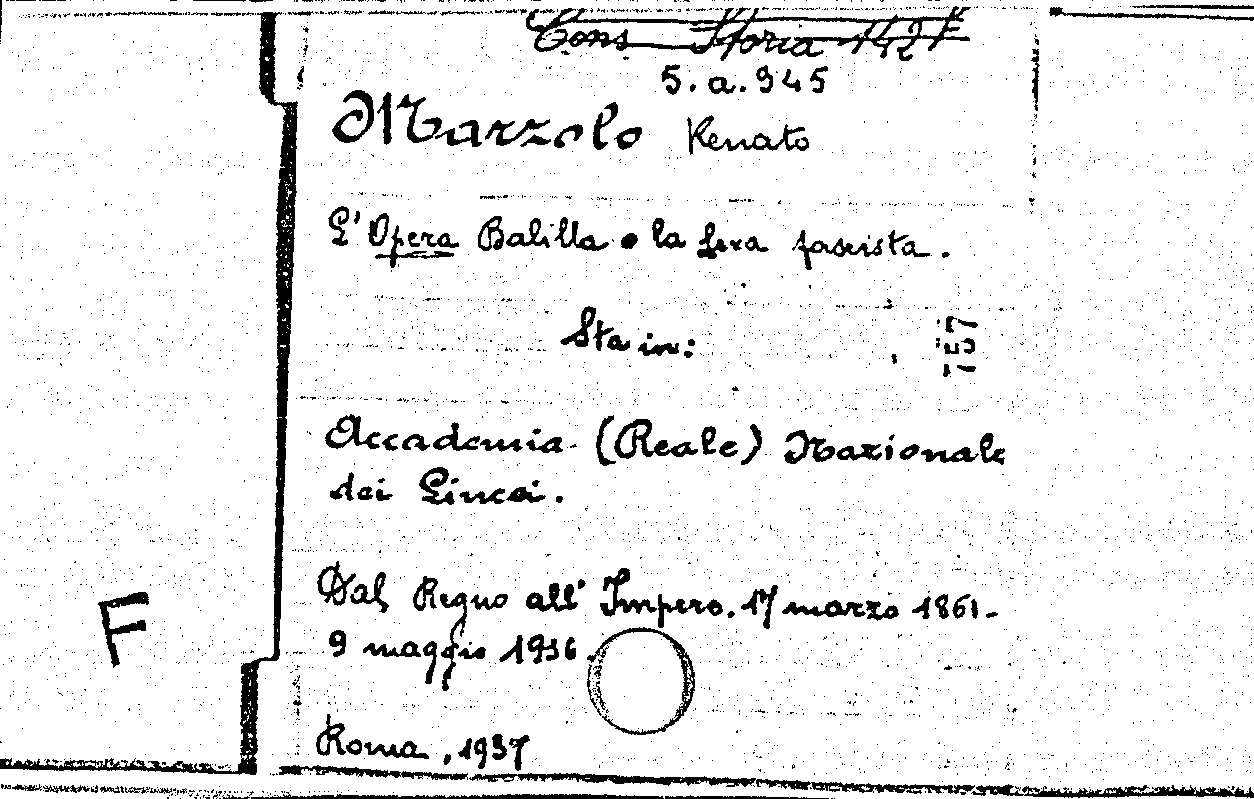 Cons Storia 142F
5.a.945
Marzolo Renato
L'Opera Balilla e la leva fascista.
Sta in:
757
Accademia (Reale) Nazionale
dei Lincei.
Dal Regno all'Impero. 17 marzo 1861-
9 maggio 1936.
Roma, 1937
F